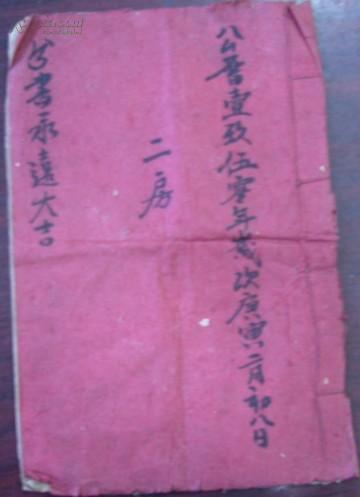 公曆壹玖伍零年歲次庚寅二月初八日
二房
分書永遠大吉